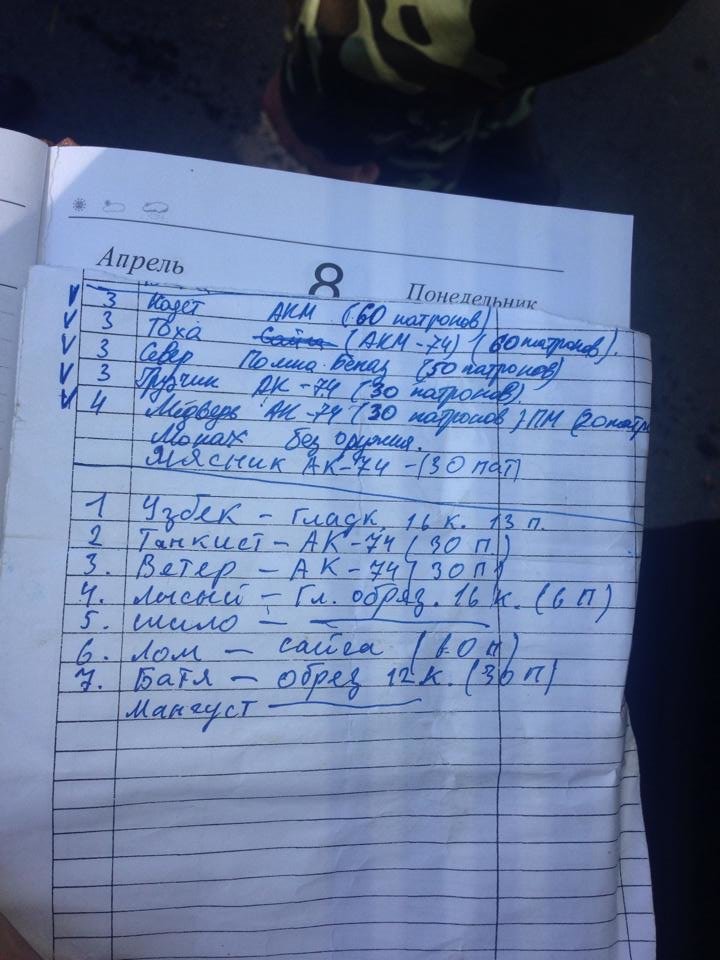 Апрель
8
Понедельник
3 Кадет АКМ (60 патронов)
3 Тоха Сайга (АКМ-74) (60 патронов).
3 Север Помпа (50 патронов)
3 Грузчик АК-74 (30 патронов).
4 Мідведь АК-74 (30 патронов) ПМ (20 патр
Монах без оружия.
Мясник АК-74 - (30 пат)
1 Узбек - гладк. 16 к. 13 п.
2 Танкист - АК-74 (30 п.)
3. Ветер - АК-74 (30 п)
4. Лысый - Гл. обрез. 16 к. (6 п)
5. Шило -
6. Лом - сайга (60 п)
7. Батя - обрез 12 к. (30 п)
Мангуст